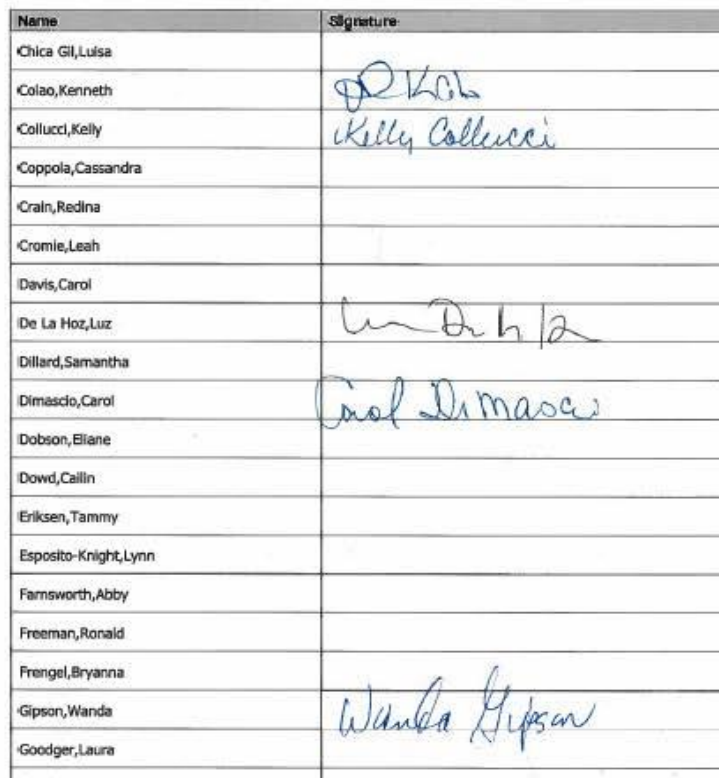 Name Signature
Chica Gil,Luisa
Colao,Kenneth
Collucci,Kelly Kelly Collucci
Coppola,Cassandra
Crain,Redina
Cromie,Leah
Davis,Carol
De La Hoz,Luz
Dillard,Samantha
Dimascio,Carol Carol DiMascio
Dobson,Eliane
Dowd,Cailin
Eriksen,Tammy
Esposito-Knight,Lynn
Farnsworth,Abby
Freeman,Ronald
Frengel,Bryanna
Gipson,Wanda Wanda Gipson
Goodger,Laura